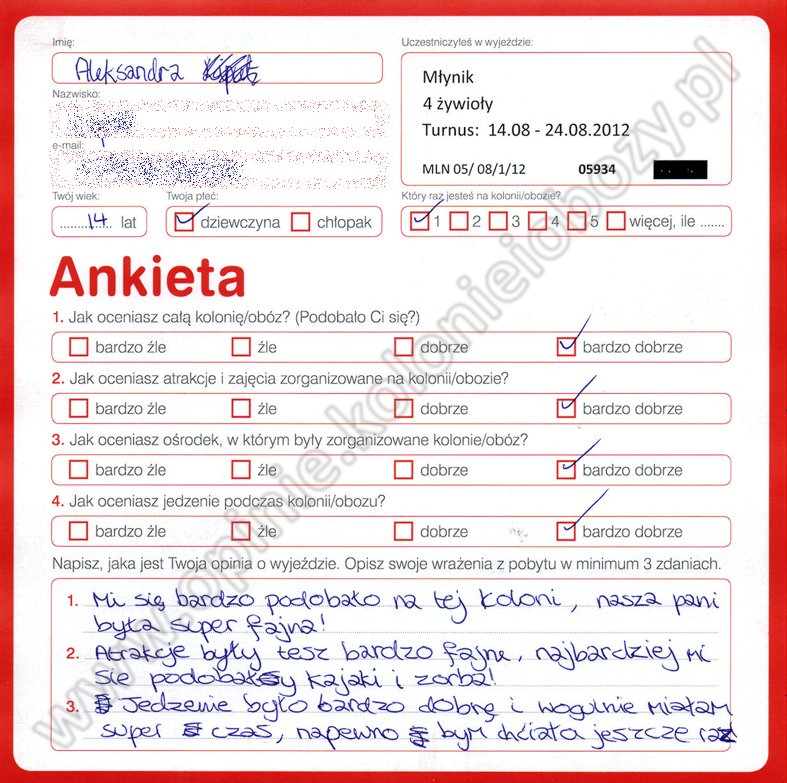 Imię:
Aleksandra
Uczestniczyłeś w wyjeździe:
Młynik
4 żywioły
Turnus: 14.08 - 24.08.2012
MLN 05/ 08/1/12 05934
Nazwisko:
e-mail:
Twój wiek:
14 lat
Twoja płeć:
dziewczyna chłopak
Który raz jesteś na kolonii/obozie?
1 2 3 4 5 więcej, ile .......
Ankieta
1. Jak oceniasz całą kolonię/obóz? (Podobało Ci się?)
bardzo źle źle dobrze bardzo dobrze
2. Jak oceniasz atrakcje i zajęcia zorganizowane na kolonii/obozie?
bardzo źle źle dobrze bardzo dobrze
3. Jak oceniasz ośrodek, w którym były zorganizowane kolonie/obóz?
bardzo źle źle dobrze bardzo dobrze
4. Jak oceniasz jedzenie podczas kolonii/obozu?
bardzo źle źle dobrze bardzo dobrze
Napisz, jaka jest Twoja opinia o wyjeździe. Opisz swoje wrażenia z pobytu w minimum 3 zdaniach.
1. Mi się bardzo podobało na tej koloni, nasza pani
była super fajna!
2. Atrakcje były tesz bardzo fajne, najbardziej mi
sie podobały kajaki i zorba!
3. Jedzenie było bardzo dobrę i wogulnie miałam
super czas, napewno bym chciała jeszcze raz
www.opinie.kolonieiobozy.pl